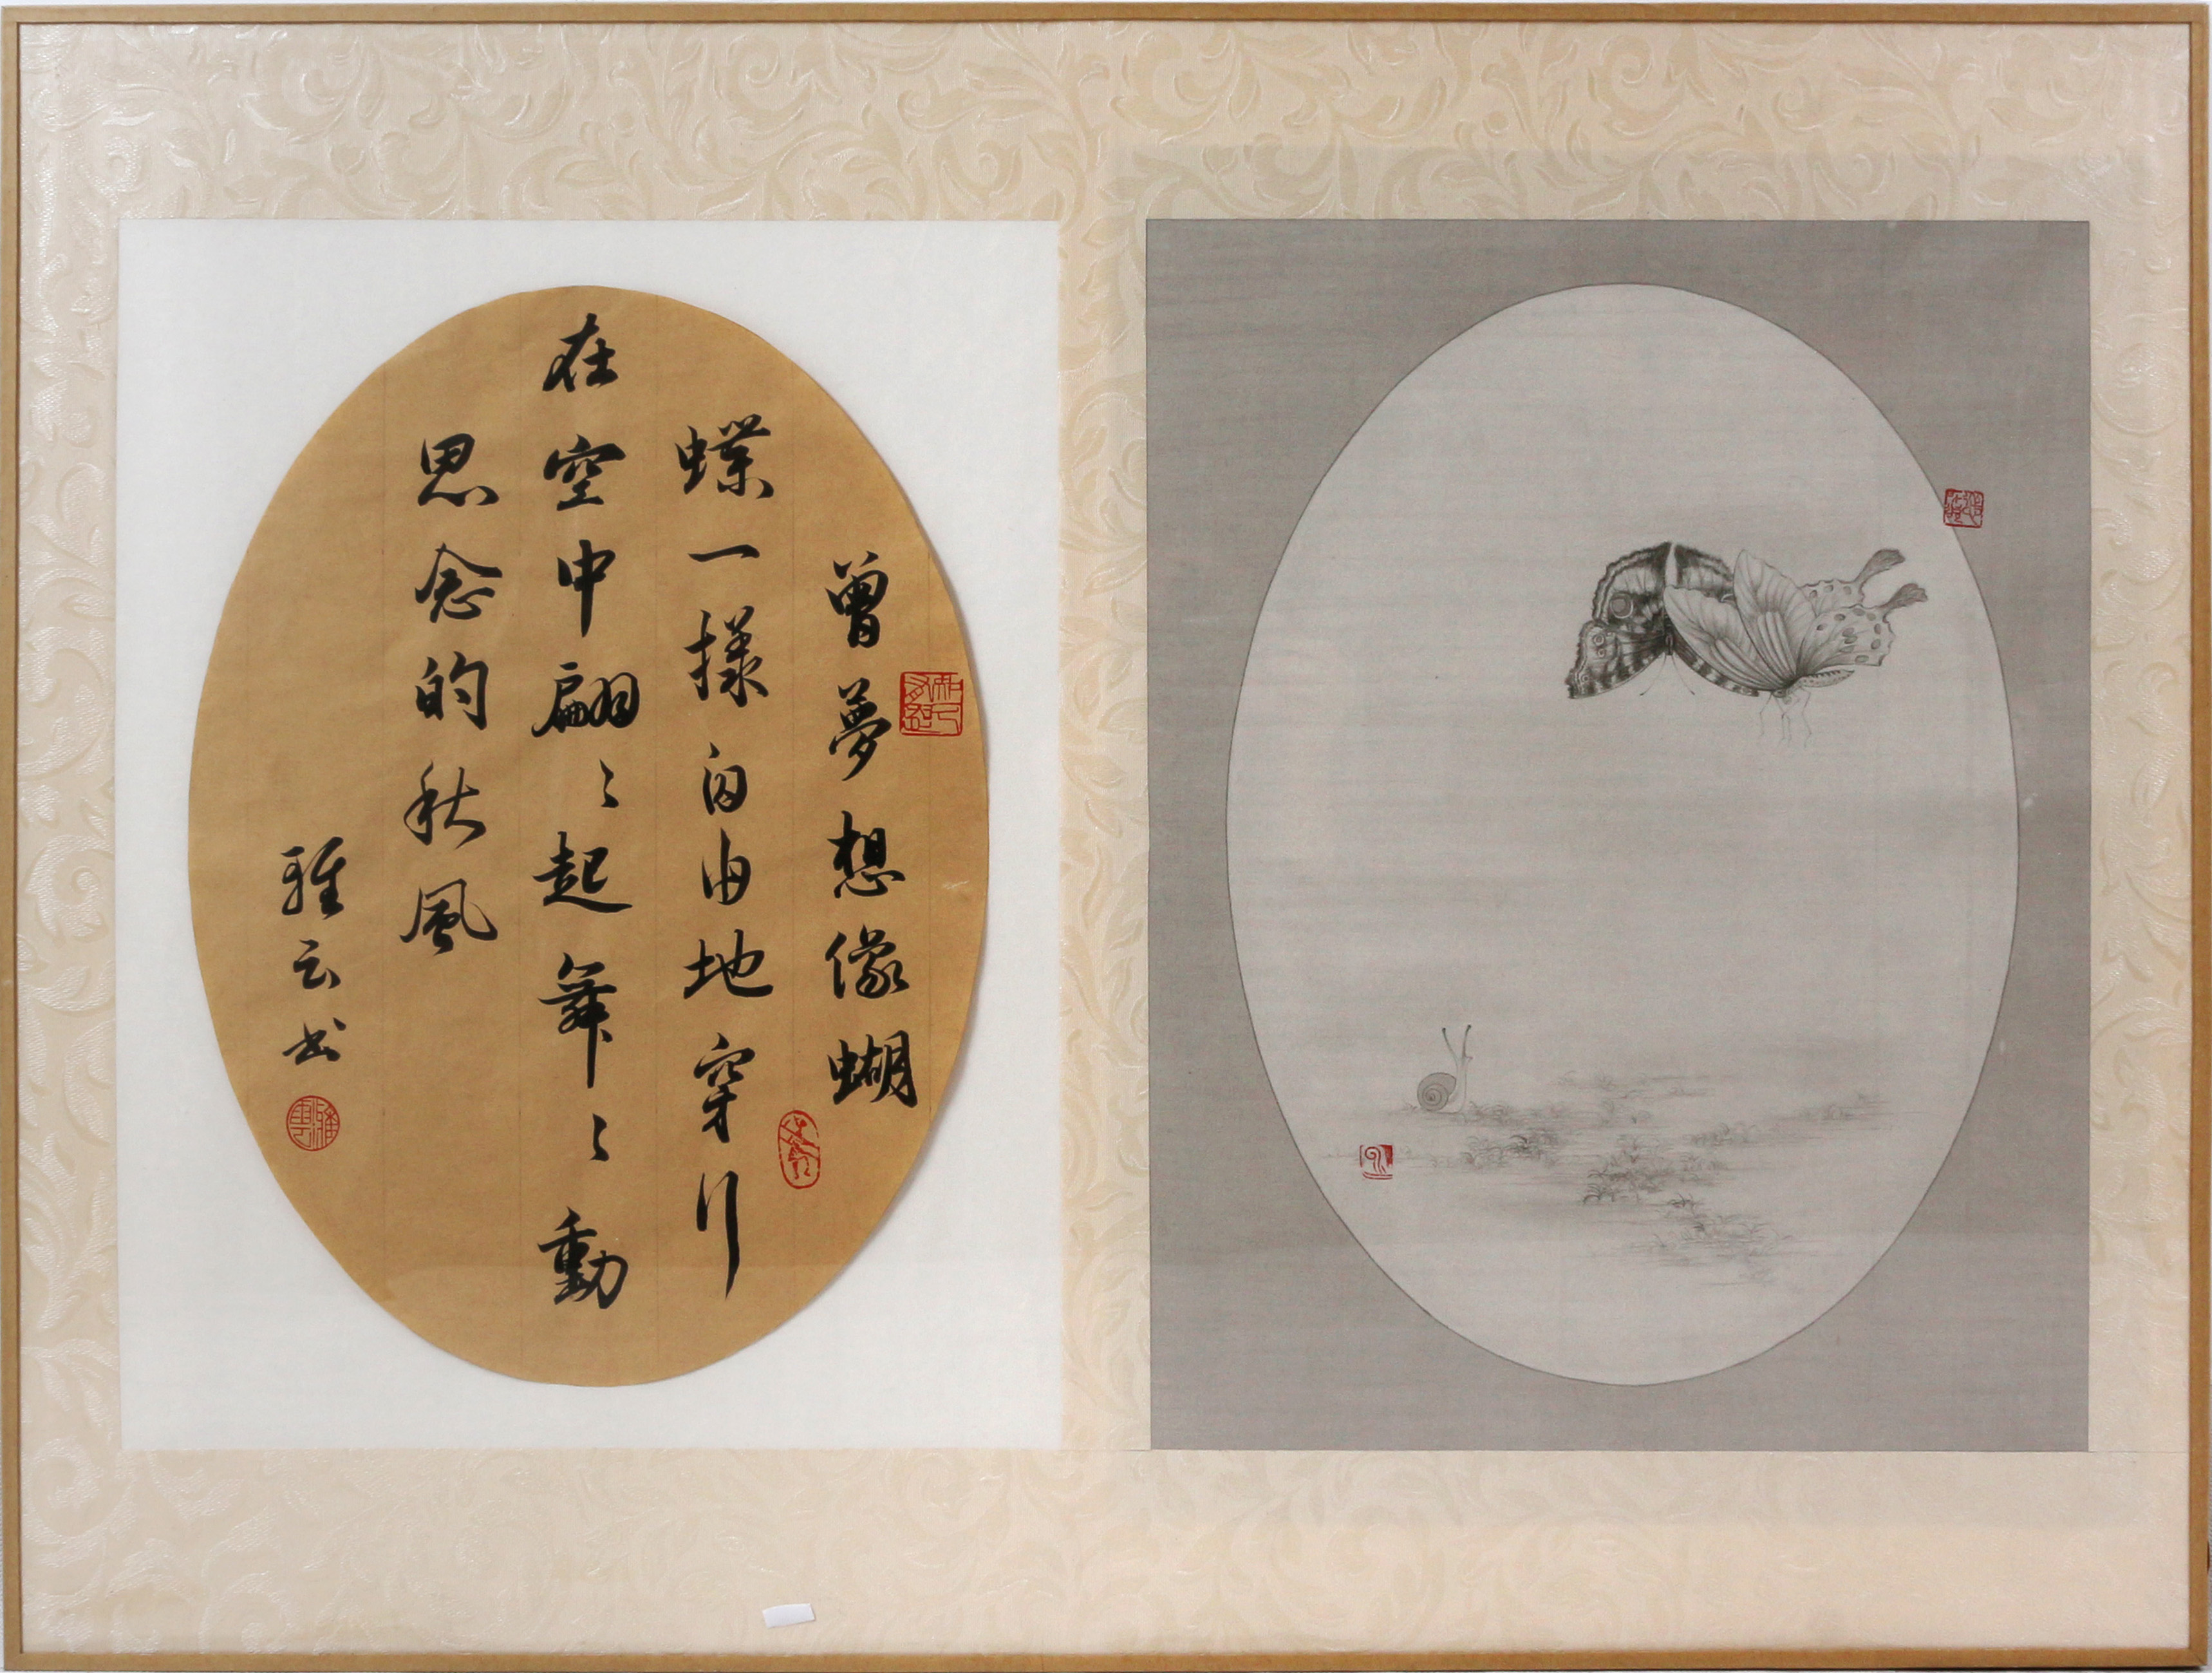 曾夢想像蝴
蝶一樣自由地穿行
在空中翩〻起舞〻動
思念的秋風
雅云书
雅雲